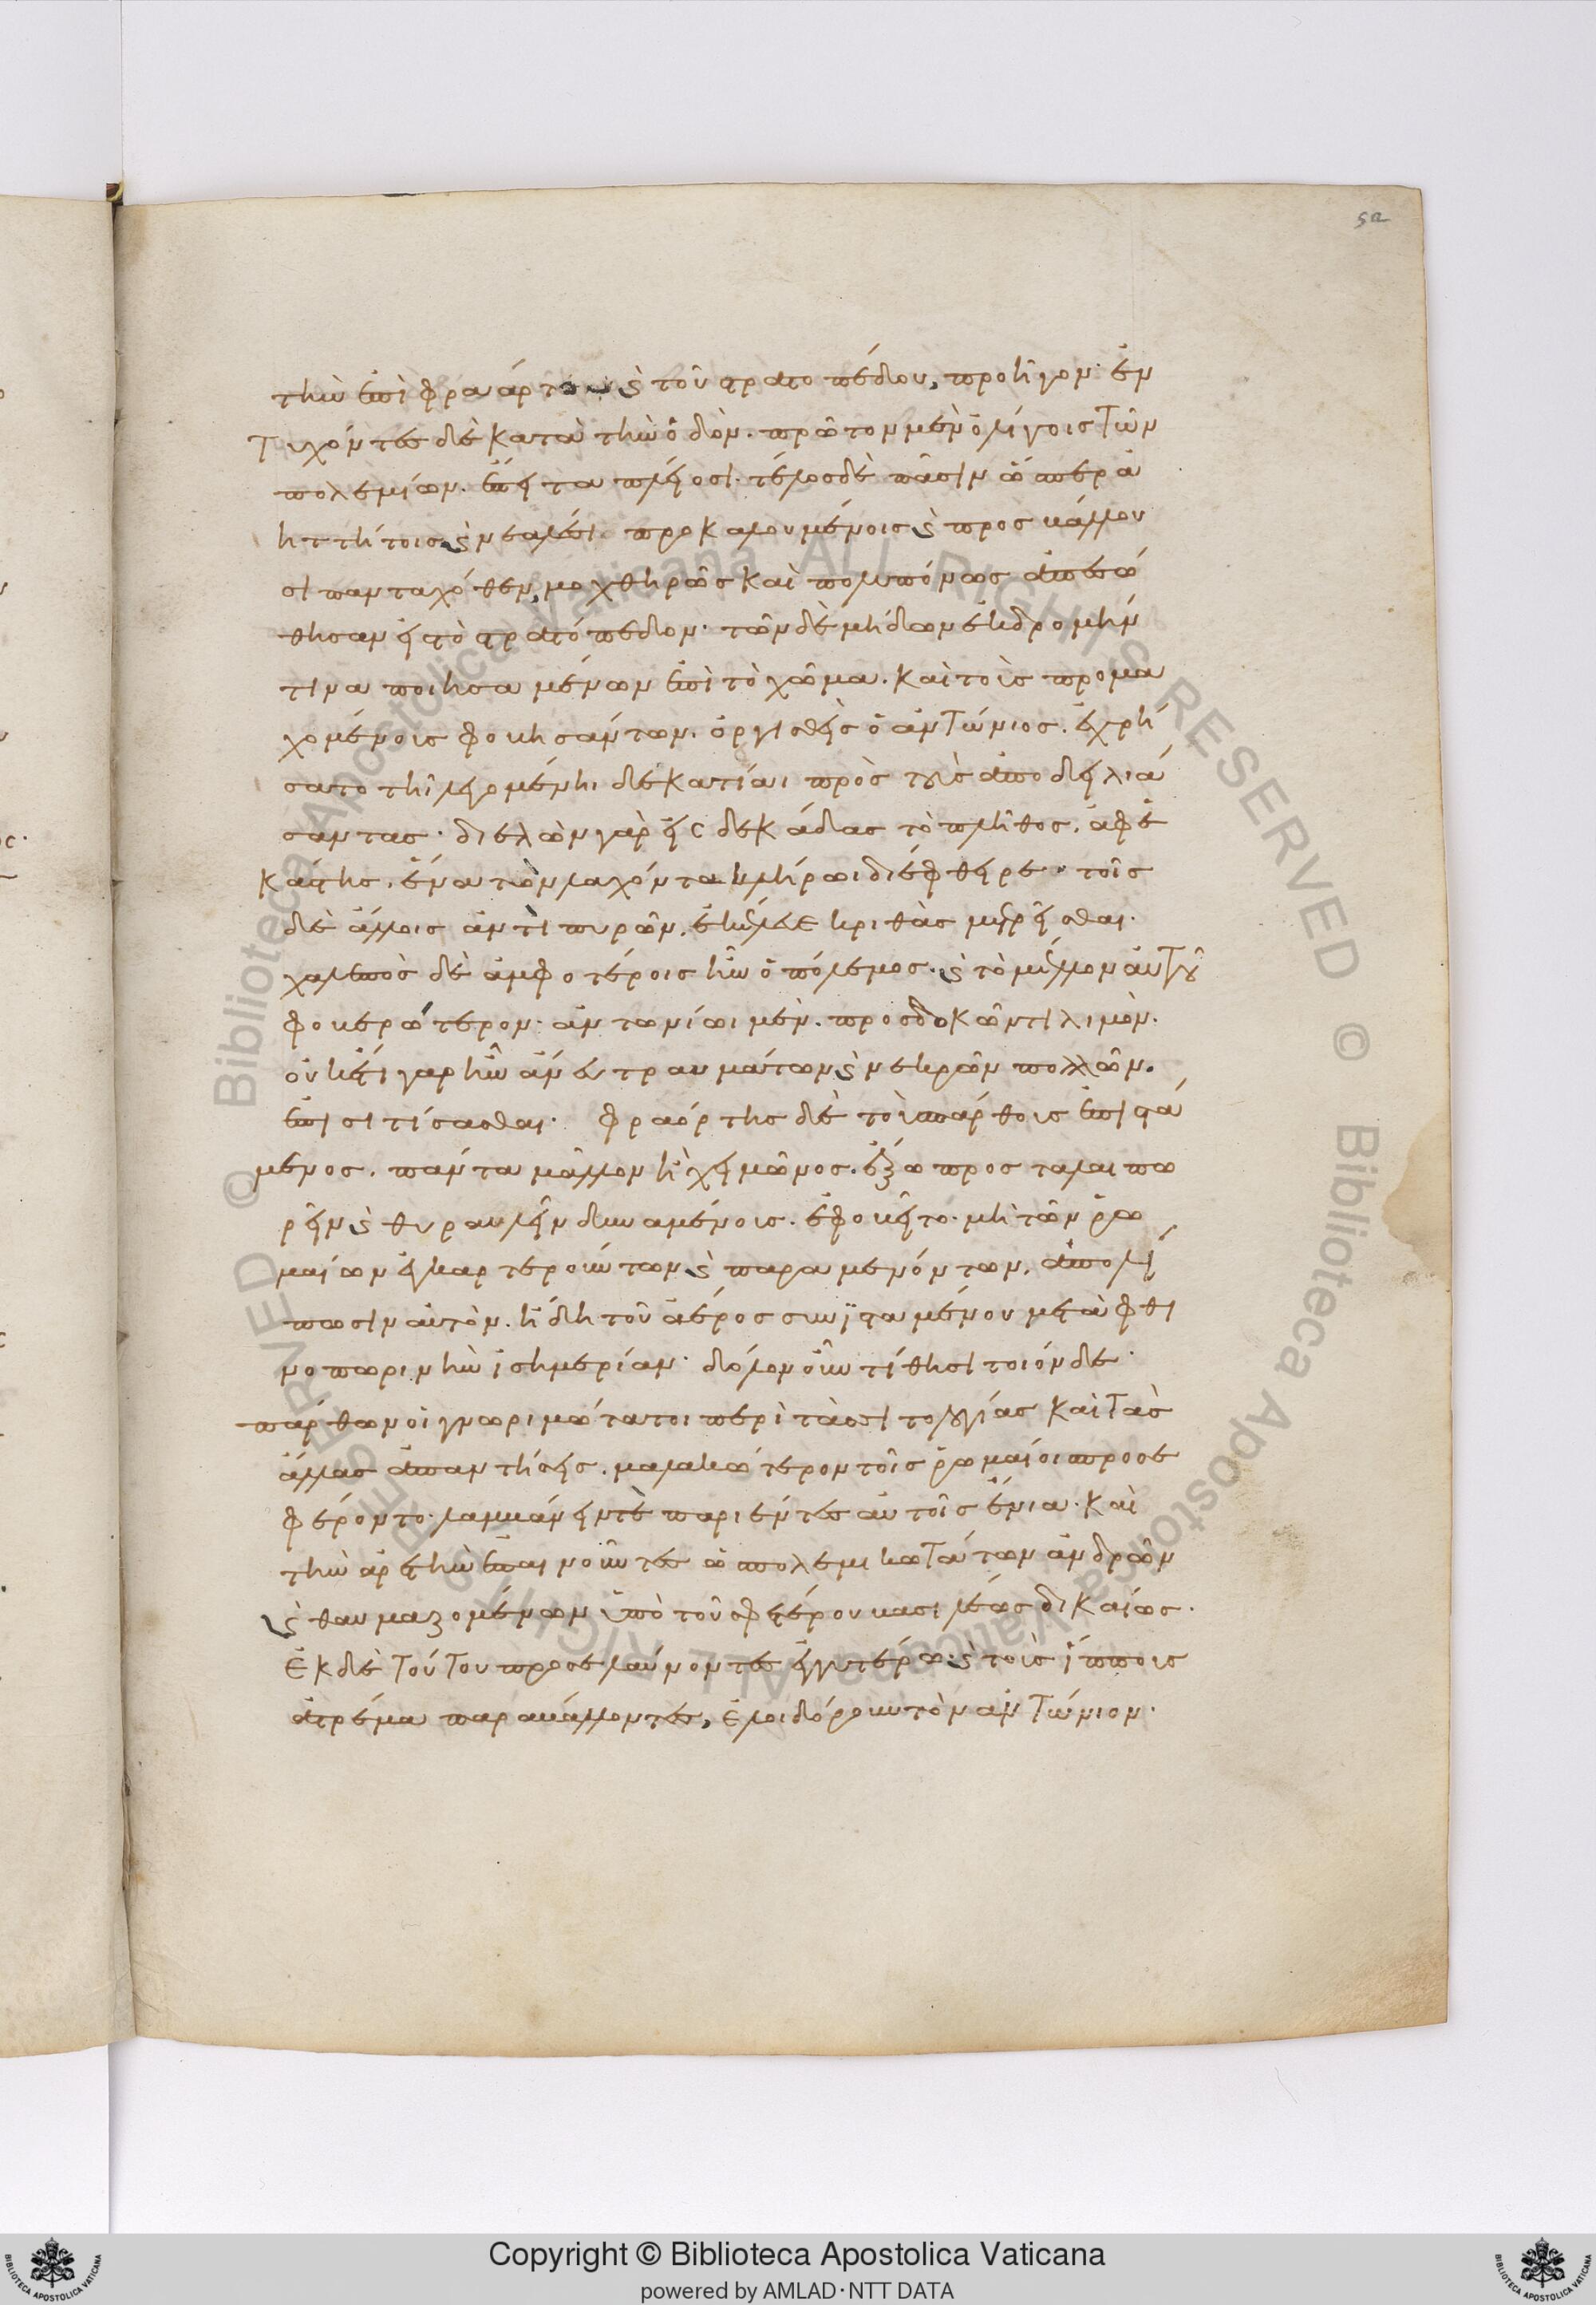 52
τὴν ἐπὶ φραάρτων ϗ τοῦ στρατοπέδου, προῆγον· ἐν
τυχόντες δὲ κατὰ τὴν ὁδὸν. πρῶτον μὲν ὀλίγοις τῶν
πολεμίων. ἔπειτα πλείοσι. τέλος δὲ πᾶσιν ὥσπερ ἀ
ηττήτοις ϗ νεαλέσι προκαλουμένοις ϗ προσβάλλου
σι πανταχόθεν, μοχθηρῶς καὶ πολυπόνως ἀπεσώ
θησαν εἰς τὸ στρατόπεδον· τῶν δὲ μήδων ἐκδρομήν
τινα ποιησαμένων ἐπὶ τὸ χῶμα. καὶ τοὺς προμα
χομένους φοβησάντων. ὀργισθεὶς ὁ ἀντώνιος. ἐχρή
σατο τῆι λεγομένηι δεκατείαι πρὸς τοὺς ἀποδειλιά
σαντας· διελὼν γὰρ εἰς δεκάδας τὸ πλῆθος. ἀφ' ἑ
κάστης. ἕνα τὸν λαχόντα κλήρωι διέφθειρε· τοῖς
δὲ ἄλλοις ἀντὶ πυρῶν. ἐκέλευε κριθὰς μετρεῖσθαι·
χαλεπὸς δὲ ἀμφοτέροις ἦν ὁ πόλεμος. ϗ τὸ μέλλον αὐτοῦ
φοβερώτερον· ἀντωνίωι μὲν. προσδοκῶντι λιμὸν.
οὐκέτι γὰρ ἦν ἄνευ τραυμάτων ϗ νεκρῶν πολλῶν.
ἐπισιτίσασθαι· φραόρτης δὲ τοὺς πάρθους ἐπιστά
μενος. πάντα μᾶλλον ἢ χειμῶνος. ἔξω προσταλαιπω
ρεῖν ϗ θυραυλεῖν δυναμένους. ἐφοβεῖτο. μὴ τῶν ῥω
μαίων ἐγκαρτερούντων ϗ παραμενόντων. ἀπολεί
πωσιν αὐτὸν. ἤδη τοῦ ἀέρος συνισταμένου μετὰ φθι
νοπωρινὴν ἰσημερίαν· δόλον οὖν τίθησι τοιόνδε·
πάρθων οἱ γνωριμώτατοι περὶ τὰς σιτολογίας καὶ τὰς
ἄλλας ἀπαντήσεις. μαλακώτερον τοῖς ῥωμαίοις προσε
φέροντο. λαμβάνειν τὲ παριέντες αὐτοῖς ἔνια. καὶ
τὴν ἀρετὴν ἐπαινοῦντες ὡς πολεμικωτάτων ἀνδρῶν
ϗ θαυμαζομένων ὑπὸ τοῦ σφετέρου βασιλέως δικαίως.
ἐκ δὲ τούτου προσελαύνοντες ἐγγυτέρω. ϗ τοὺς ἵππους
ἀτρέμα παραβάλλοντες, ἐλοιδόρουν τὸν ἀντώνιον·
Copyright © Biblioteca Apostolica Vaticana
powered by AMLAD·NTT DATA